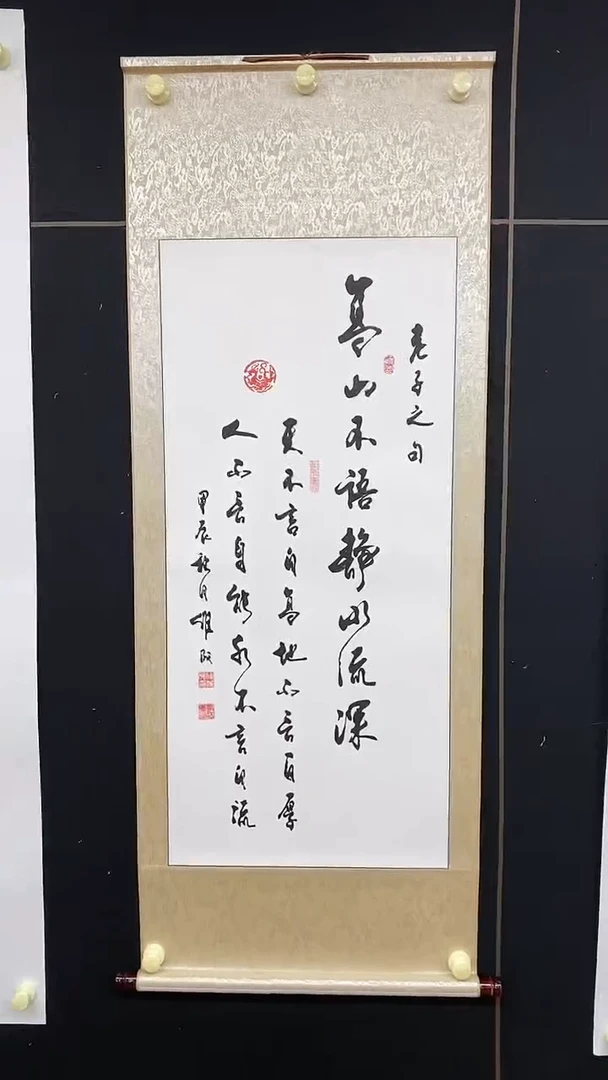 老子之句
高山不语静水流深
天不言自高地不言自厚
人不言自能水不言自流
甲辰秋月